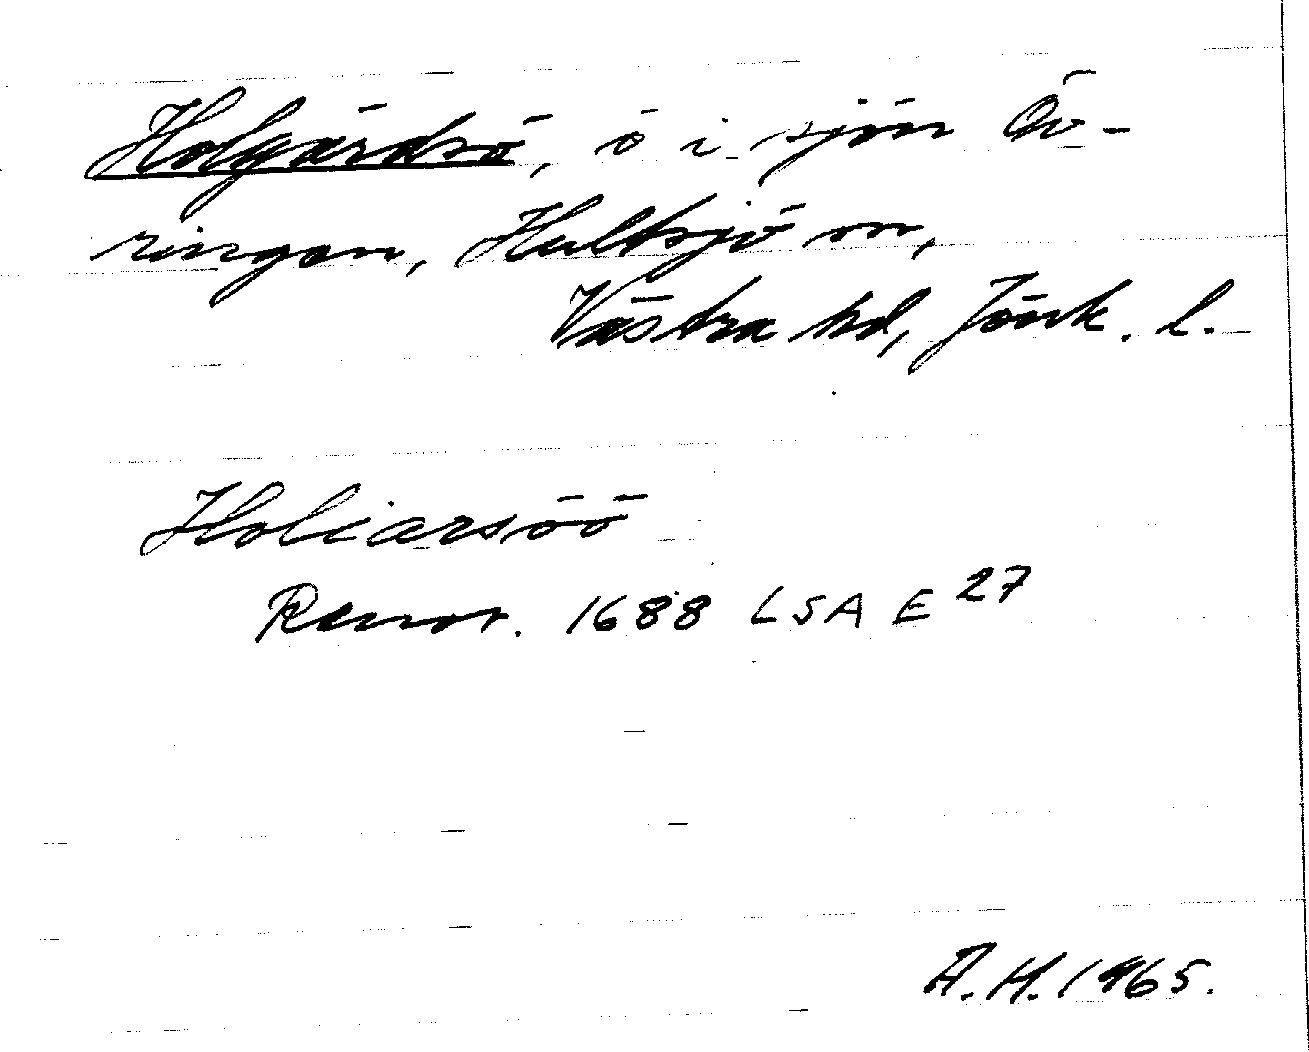 Holgärdsö, ö i sjön Öv-
ringen, Hultsjö sn,
Västra hd, Jönk. l.
Holiarsöö
Rannr. 1688 LSA E 27
A.H. 1965.